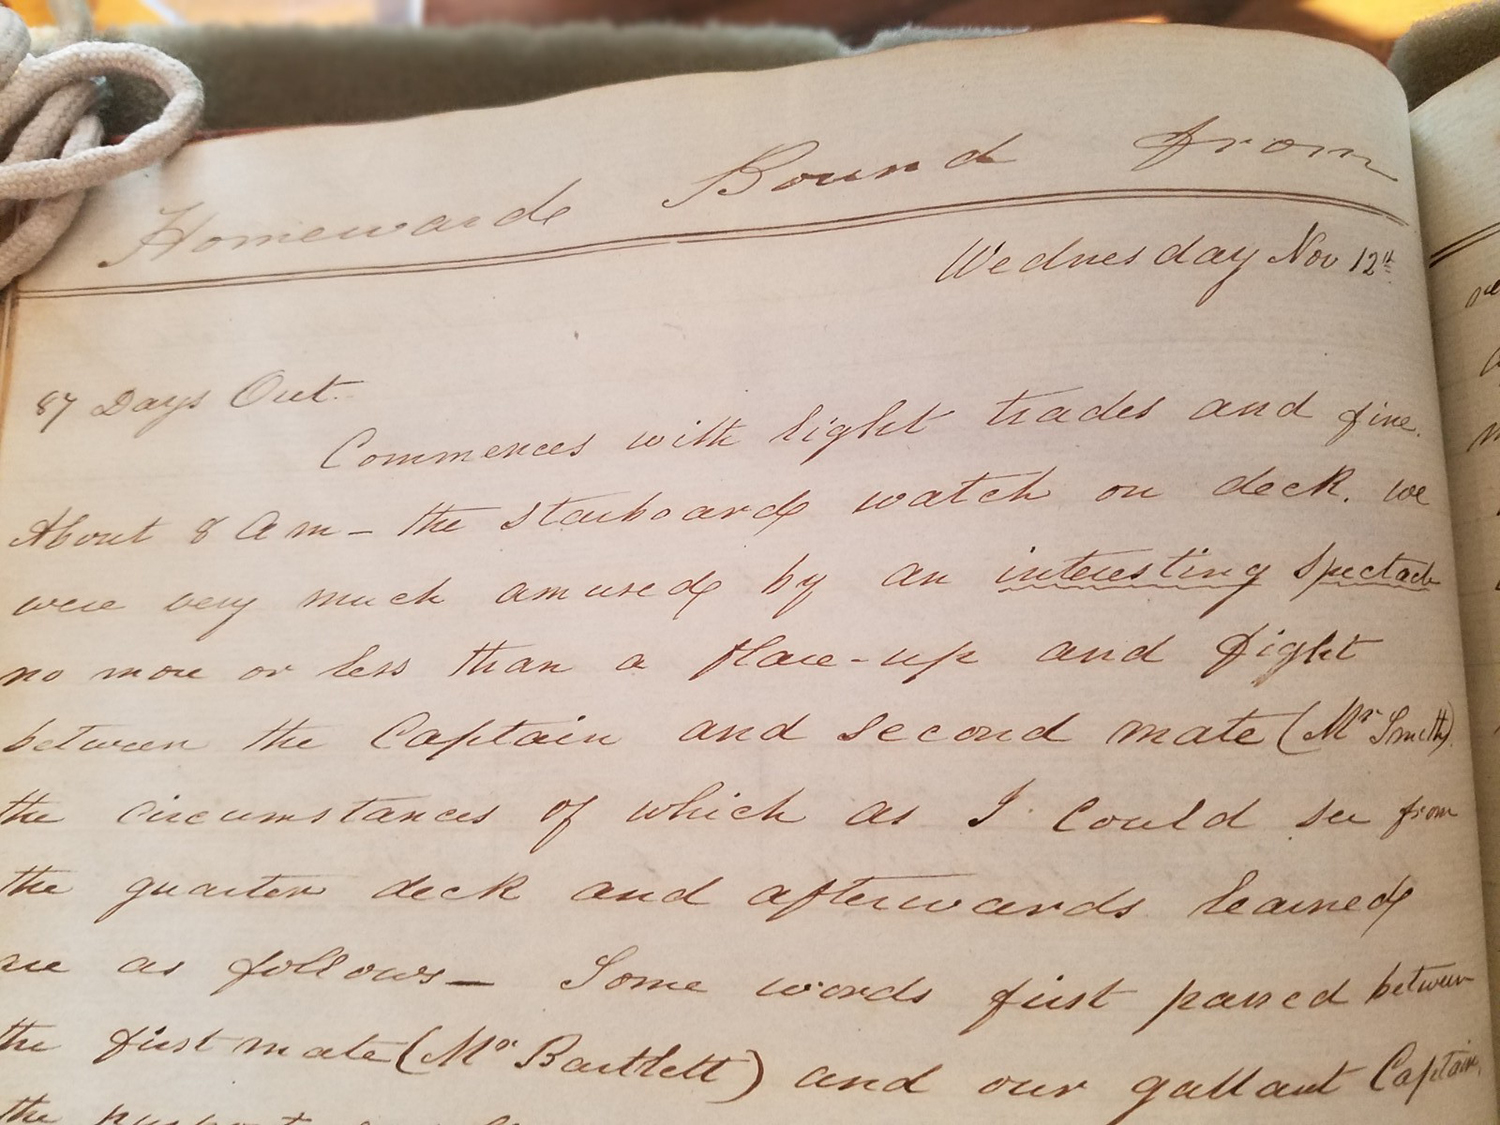 Homeward Bound from
Wednesday Nov 12th
87 Days Out.
Commences with light trades and fine.
About 8 A m – the starboard watch on deck. we
were very much amused by an interesting spectacle
no more or less than a flare-up and fight
between the Captain and second mate (Mr Smith)
the circumstances of which as I could see from
the quarter deck and afterwards learned
are as follows – Some words first passed between
the first mate (Mr Bartlett) and our gallant Captain,
the purport